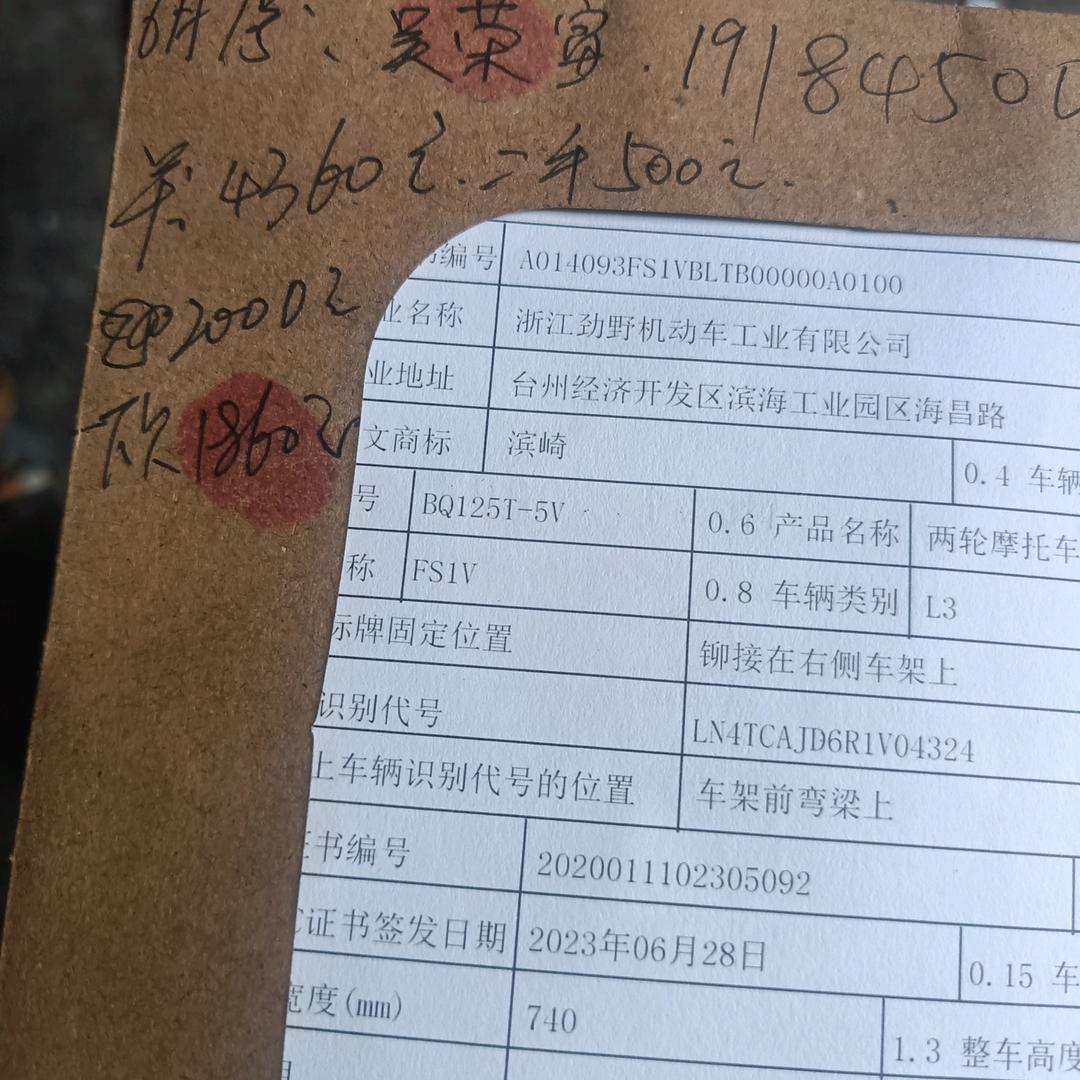 吴荣富. 1918450
羊. 4360元. 二手500元.
2000元
下欠1860元
书编号 A014093FS1VBLTB00000A0100
业名称 浙江劲野机动车工业有限公司
业地址 台州经济开发区滨海工业园区海昌路
文商标 滨崎 0.4 车辆
号 BQ125T-5V 0.6 产品名称 两轮摩托车
称 FS1V 0.8 车辆类别 L3
标牌固定位置 铆接在右侧车架上
识别代号 LN4TCAJD6R1V04324
上车辆识别代号的位置 车架前弯梁上
证书编号 2020011102305092
C证书签发日期 2023年06月28日 0.15 车
宽度(mm) 740 1.3 整车高度